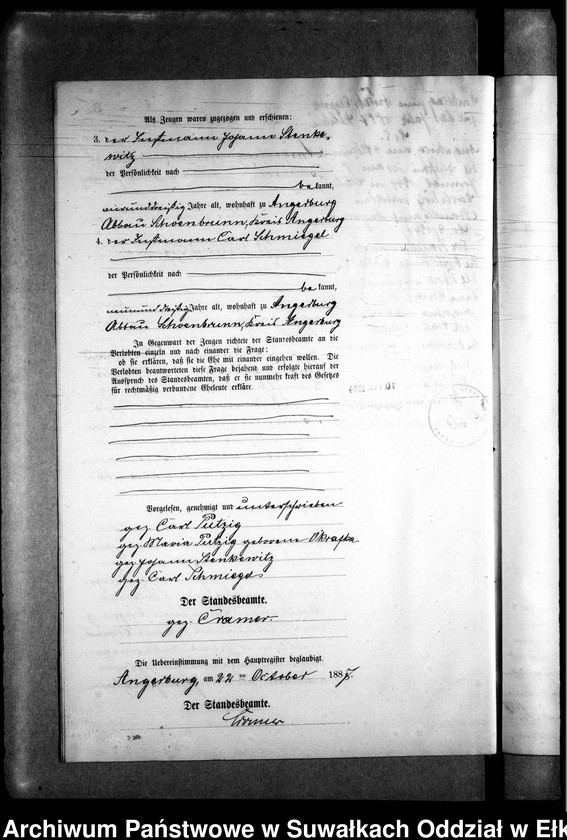 Als Zeugen waren zugezogen und erschienen:
3. der Instmann Johann Stenke-
witz
der Persönlichkeit nach
bekannt,
vierunddreißig Jahre alt, wohnhaft zu Angerburg
Abbau Schoenbrunn, Kreis Angerburg
4. der Instmann Carl Schmiegel
der Persönlichkeit nach
bekannt,
neununddreißig Jahre alt, wohnhaft zu Angerburg
Abbau Schoenbrunn, Kreis Angerburg
In Gegenwart der Zeugen richtete der Standesbeamte an die
Verlobten einzeln und nach einander die Frage:
ob sie erklären, daß sie die Ehe mit einander eingehen wollen. Die
Verlobten beantworteten diese Frage bejahend und erfolgte hierauf der
Ausspruch des Standesbeamten, daß er sie nunmehr kraft des Gesetzes
für rechtmäßig verbundene Eheleute erkläre.
Vorgelesen, genehmigt und unterschrieben
gez. Carl Putzig
gez. Maria Putzig geborene Okrafka
gez. Johann Stenkewitz
gez. Carl Schmiegel
Der Standesbeamte.
gez. Cramer.
Die Uebereinstimmung mit dem Hauptregister beglaubigt.
Angerburg, am 22 ten October 1887.
Der Standesbeamte.
Cramer
Archiwum Państwowe w Suwałkach Oddział w Ełk